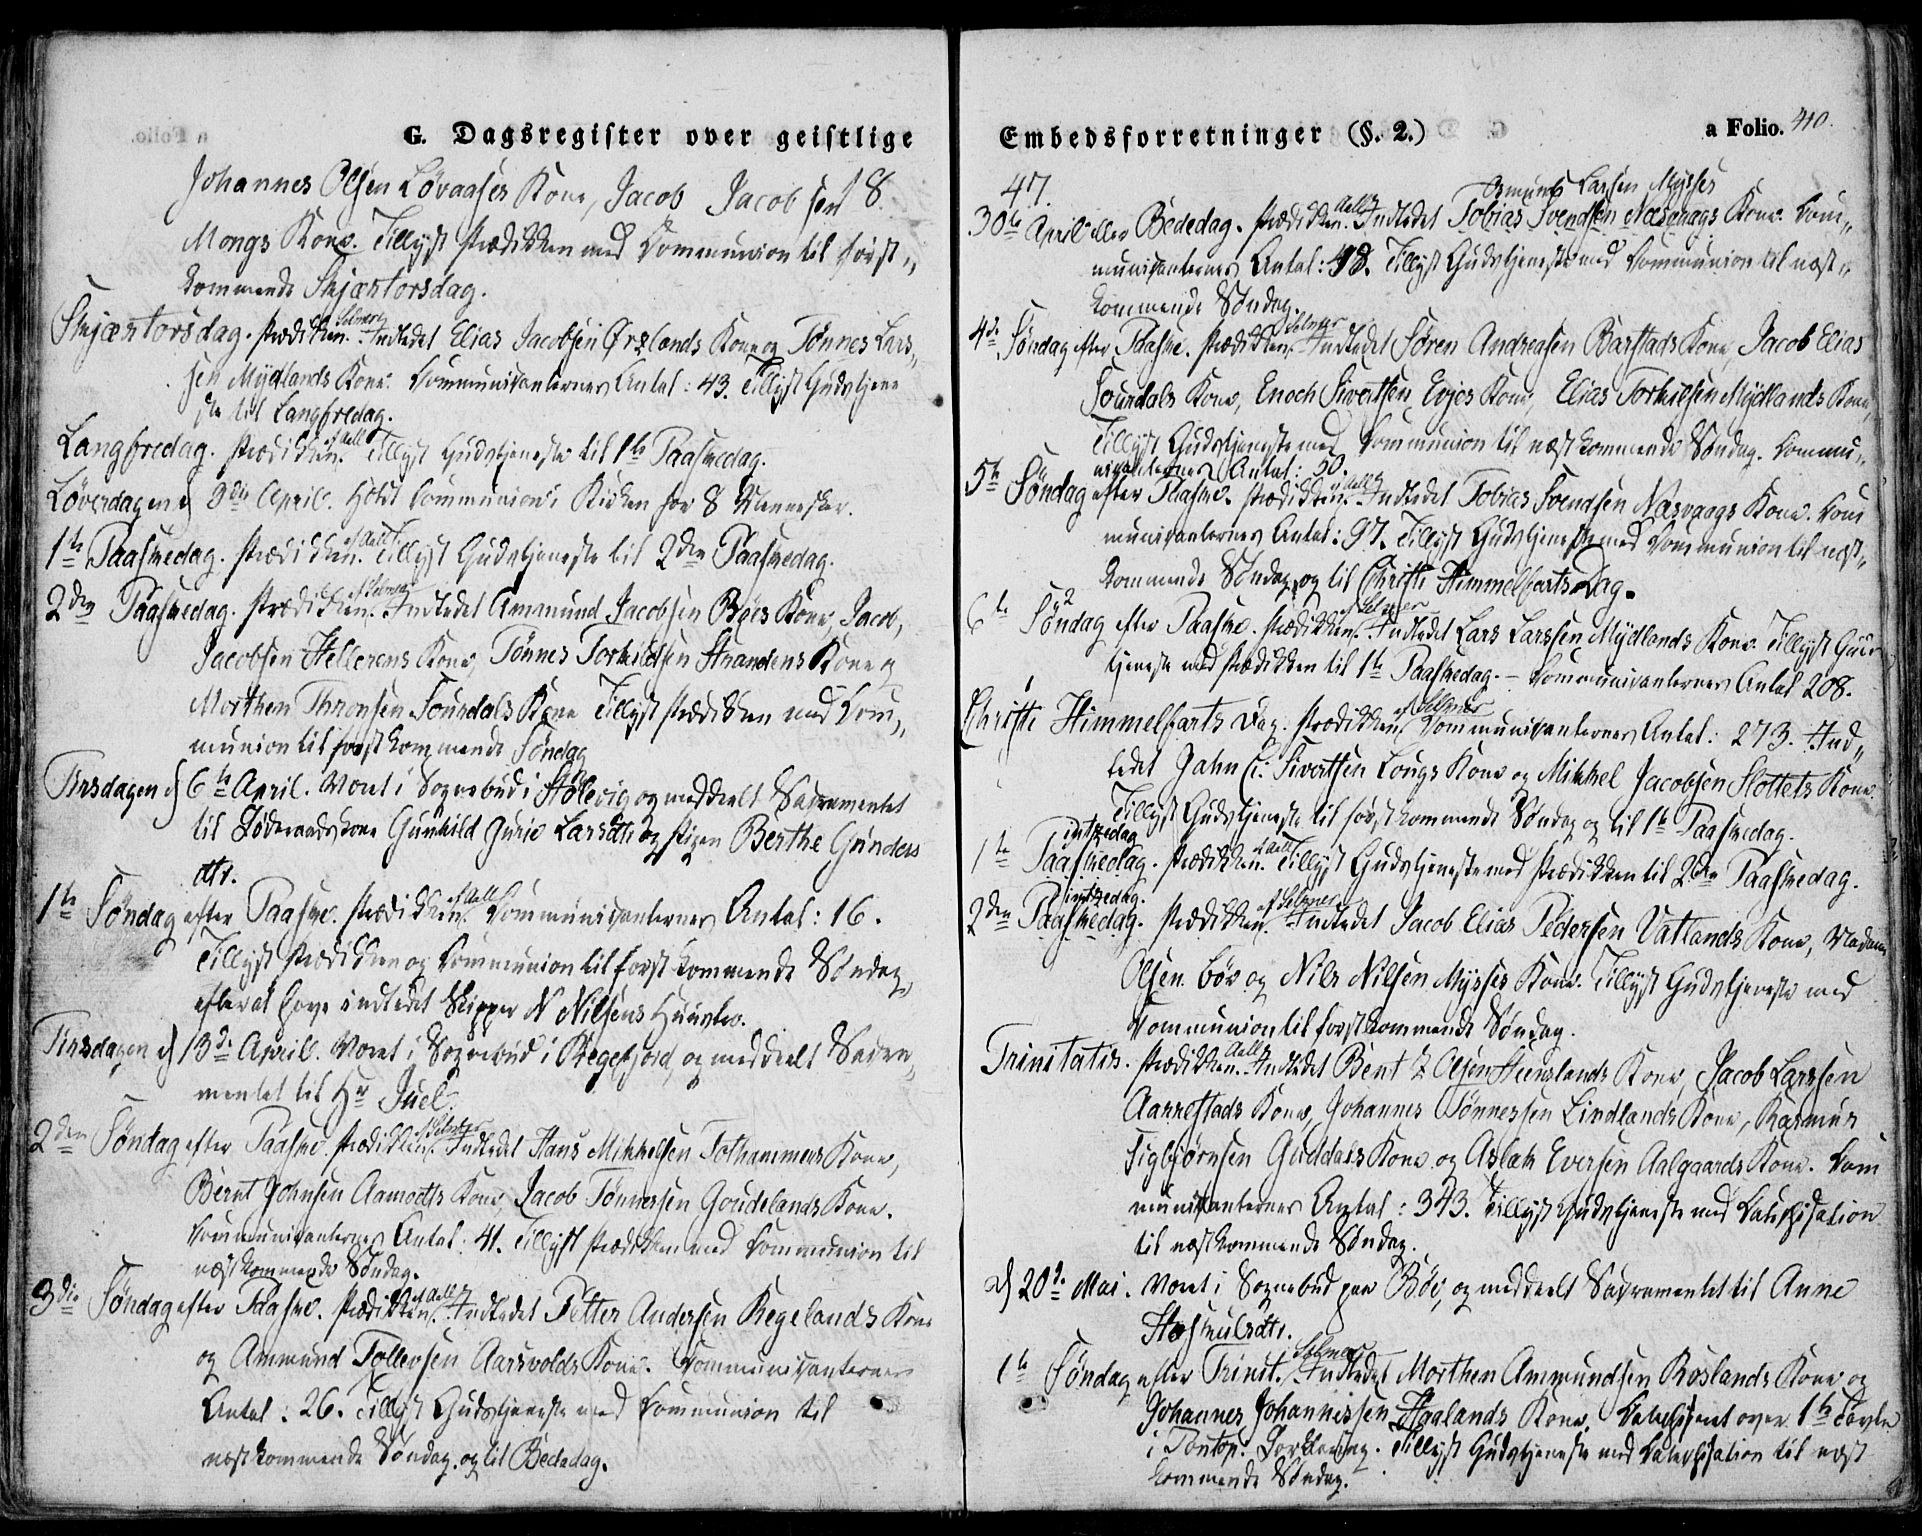 G. Dagsregister over geistlige
Johannes Olsen Løvaases Kone, Jacob Jacobsen 18
Mongs Kone. Tillyst Prædikken med Communion til først„
kommende Skjærtorsdag.
Skjærtorsdag. Prædikken af Selmer. Indledet Elias Jacobsen Ørslands Kone og Tønnes Lars„
sen Mydlands Kone. Communicanternes Antal: 43. Tillyst Gudstjene
ste til Langfredag.
Langfredag. Prædikken af Aall. Tillyst Gudstjeneste til 1ste Paaskedag.
Løverdagen d 3die April. Holdt Communion i Kirken for 8 Mennesker.
1ste Paaskedag. Prædikken af Aall. Tillyst Gudstjeneste til 2den Paaskedag.
2den Paaskedag. Prædikken af Selmer. Indledet Ammund Jacobsen Bøes Kone, Jacob,
Jacobsen Hellerens Kone, Tønnes Torkildsen Strandens Kone og
Morthen Thronsen Sourdals Kone Tillyst Prædikken med Com„
munion til først kommende Søndag
Tirsdagen d 6te April. Været i Sognebud i Stølevig og meddeelt Sacramentet
til Føderaadskone Gunhild Gurie Larsdtr og Pigen Berthe Gunders
dtr.
1ste Søndag efter Paaske. Prædikken af Aall. Communicanternes Antal: 16.
Tillyst Prædikken og Communion til først kommende Søndag,
efterat have indledet Skipper N Nilsens Huustro.
Tirsdagen d 13de April. Været i Sognebud i Regefjord, og meddeelt Sacra„
mentet til Hr Juel.
2den Søndag efter Paaske. Prædikken af Selmer. Indledet Hans Mikkelsen Tothammers Kone,
Bernt Johnsen Aamodts Kone, Jacob Tønnessen Goudelands Kone.
Communicanternes Antal: 41. Tillyst Prædikken med Communion til
næstkommende Søndag.
3die Søndag efter Paaske. Prædikken af Aall. Indledet Petter Andersen Regelands Kone
og Ammund Tollevsen Aarsvolds Kone. Communicanternes
Antal: 26. Tillyst Gudstjeneste med Communion til
næstkommende Søndag. og til Bededag.
Embedsforretninger (§. 2.) a Folio. 410.
47.
Osmund Larsen Mysses
30te April eller Bededag. Prædikken Aall. Indledet Tobias Svendsen Næsvaags Kone. Com„
municanternes Antal: 98. Tillyst Gudstjeneste med Communion til næst„
kommende Søndag.
4de Søndag efter Paaske. Prædikken Selmer. Indledet Søren Andreasen Barstads Kone, Jacob Elias
Sourdals Kone, Enoch Sivertsen Evjes Kone, Elias Torkilsen Mydlands Kone,
Tillyst Gudstjeneste med Communion til næstkommende Søndag. Commu„
nicanternes Antal: 50.
5te Søndag efter Paaske. Prædikken af Aall. Indledet Tobias Svendsen Næsvaags Kone. Com
municanternes Antal: 97. Tillyst Gudstjeneste med Communion til næst„
kommende Søndag og til Christi Himmelfarts Dag.
6te Søndag efter Paaske. Prædikken af Selmer. Indledet Lars Larssen Mydlands Kone. Tillyst Guds
tjeneste med Prædikken til 1ste Paaskedag. – Communicanternes Antal 208.
Christi Himmelfarts Dag. Prædikken af Selmer Communicanternes Antal: 273. Ind„
ledet Jahn C: Sivertsen Longs Kone og Mikkel Jacobsen Slottets Kone.
Tillyst Gudstjeneste til først kommende Søndag og til 1ste Paaskedag.
Pintsedag
1ste Paaskedag. Prædikken af Aall. Tillyst Gudstjeneste med Prædikken til 2den Paaskedag.
Pintsedag.
2den Paaskedag. Prædikken af Selmer. Indledet Jacob Elias Pedersen Vatlands Kone, Madame
Olsen Bøe og Nils Nilsen Mysses Kone. Tillyst Gudstjeneste med
Communion til først kommende Søndag.
Trinitatis. Prædikken Aall. Indledet Bent Olsen Heenglands Kone, Jacob Larssen
Aarrestads Kone, Johannes Tønnessen Lindlands Kone, Rasmus
Sigbjørnsen Guddals Kone og Aslak Eversen Aalgaards Kone. Com
municanternes Antal: 343. Tillyst Gudstjeneste med Catechisation
til næstkommende Søndag.
d 20de Mai. Været i Sognebud paa Bøe, og meddeelt Sacramentet til Anne
Hoskuldsdtr.
1ste Søndag efter Trinit. Selmer. Indledet Morthen Ammundsen Røslands Kone og
Johannes Johannissen Haalands Kone. Catechiseret over 1ste Parti
i Pontop. Forklaring. Tillyst Gudstjeneste med Catechisation til næst
kommende Søndag.